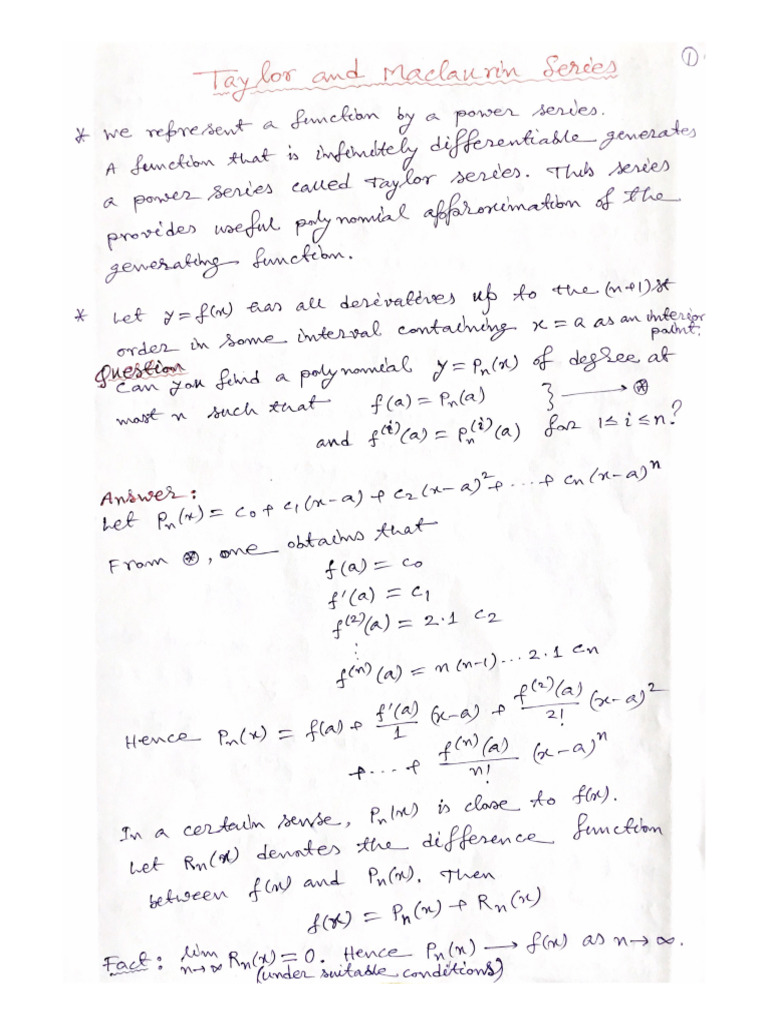 ①
Taylor and Maclaurin Series
* We represent a function by a power series.
A function that is infinitely differentiable generates
a power series called Taylor series. This series
provides useful polynomial approximation of the
generating function.
* Let y = f(x) has all derivatives up to the (n+1)st
order in some interval containing x = a as an interior point.
Question
Can you find a polynomial y = Pₙ(x) of degree at
most n such that f(a) = Pₙ(a)
and f⁽ⁱ⁾(a) = Pₙ⁽ⁱ⁾(a) for 1 ≤ i ≤ n? } → ⊛
Answer:
Let Pₙ(x) = c₀ + c₁(x-a) + c₂(x-a)² + ... + cₙ(x-a)ⁿ
From ⊛, one obtains that
f(a) = c₀
f'(a) = c₁
f⁽²⁾(a) = 2·1 c₂
⋮
f⁽ⁿ⁾(a) = n(n-1)...2·1 cₙ
Hence Pₙ(x) = f(a) + f'(a)/1 (x-a) + f⁽²⁾(a)/2! (x-a)²
+ ... + f⁽ⁿ⁾(a)/n! (x-a)ⁿ
In a certain sense, Pₙ(x) is close to f(x).
Let Rₙ(x) denotes the difference function
between f(x) and Pₙ(x). Then
f(x) = Pₙ(x) + Rₙ(x)
Fact: lim n→∞ Rₙ(x) = 0. Hence Pₙ(x) → f(x) as n→∞.
(under suitable conditions)